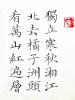 獨立寒秋湘江
北去橘子洲頭
看萬山紅遍層